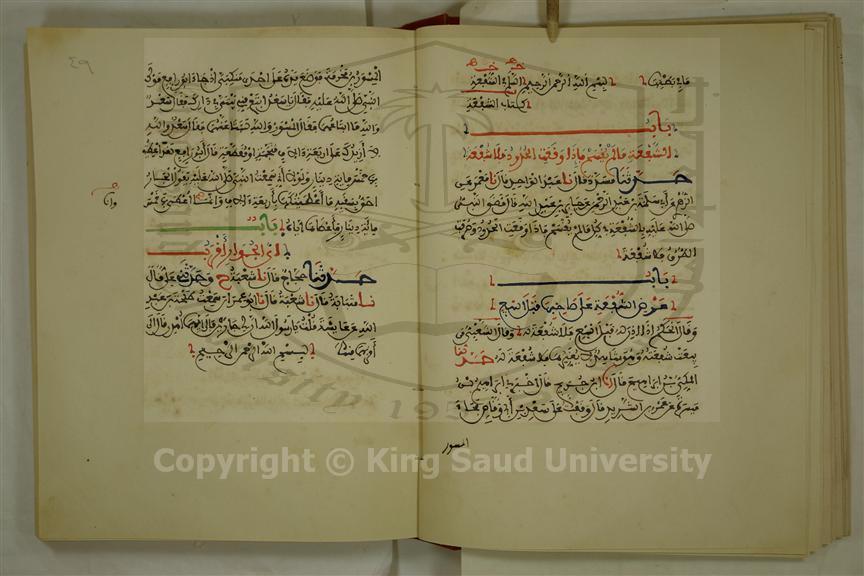 ما يضمنها بسم الله الرحمن الرحيم السلم في الشفعة
كتاب الشفعة
باب
الشفعة فيما لم يقسم فإذا وقعت الحدود فلا شفعة
حدثنا مسدد قال نا عبد الواحد قال نا معمر عن
الزهري عن أبي سلمة بن عبد الرحمن عن جابر بن عبد الله قال قضى النبي
صلى الله عليه بالشفعة في كل ما لم يقسم فإذا وقعت الحدود وصرفت
الطرق فلا شفعة
باب
عرض الشفعة على صاحبها قبل البيع
وقال الحكم إذا أذن له قبل البيع فلا شفعة له وقال الشعبي من
بيعت شفعته وهو شاهد لا يغيرها فلا شفعة له حدثنا
المكي بن إبراهيم قال نا ابن جريج قال أخبرني إبراهيم بن
ميسرة عن عمرو بن الشريد قال وقفت على سعد بن أبي وقاص فجاء
المسور
المسور بن مخرمة فوضع يده على إحدى منكبي إذ جاء أبو رافع مولى
النبي صلى الله عليه فقال يا سعد ابتع مني بيتي في دارك فقال سعد
والله ما ابتاعهما فقال المسور والله لتبتاعنهما فقال سعد والله
لا أزيدك على أربعة آلاف منجمة أو مقطعة قال أبو رافع لقد أعطيت
بها خمس مائة دينار ولولا أني سمعت النبي صلى الله عليه يقول الجار
أحق بسقبه ما أعطيتكها بأربعة آلاف وأنا أعطى بها خمس
وأنا
مائة دينار فأعطاها إياه باب
أي الجوار أقرب
حدثنا حجاج قال نا شعبة ح وحدثني علي قال
نا شبابة قال نا شعبة قال نا أبو عمران سمعت طلحة بن عبد
الله عن عائشة قلت يا رسول الله إن لي جارين فإلى أيهما أهدي قال إلى
أقربهما منك بابا بسم الله الرحمن الرحيم
٤٩
Copyright © King Saud University